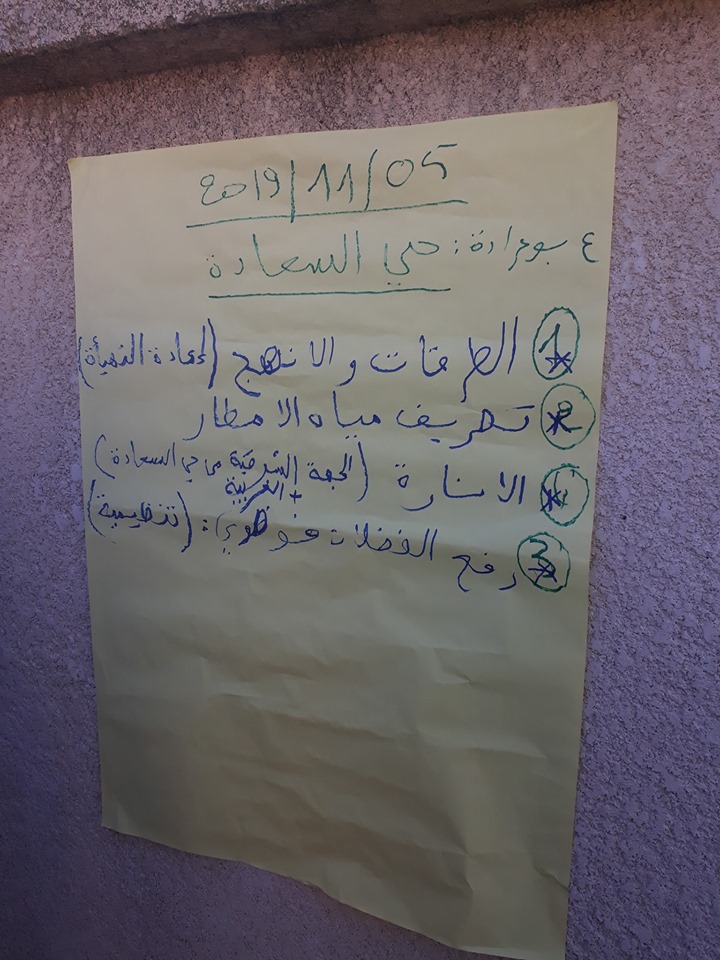 2019/11/05
ع بوعرادة: حي السعادة
1 الطرقات والانهج (اعادة التهيأة)
2 تصريف مياه الامطار
4 الانارة (الجهة الشرقية من حي السعادة)
+ الغربية
3 رفع الفضلات فوضوي: (تنظيمية)